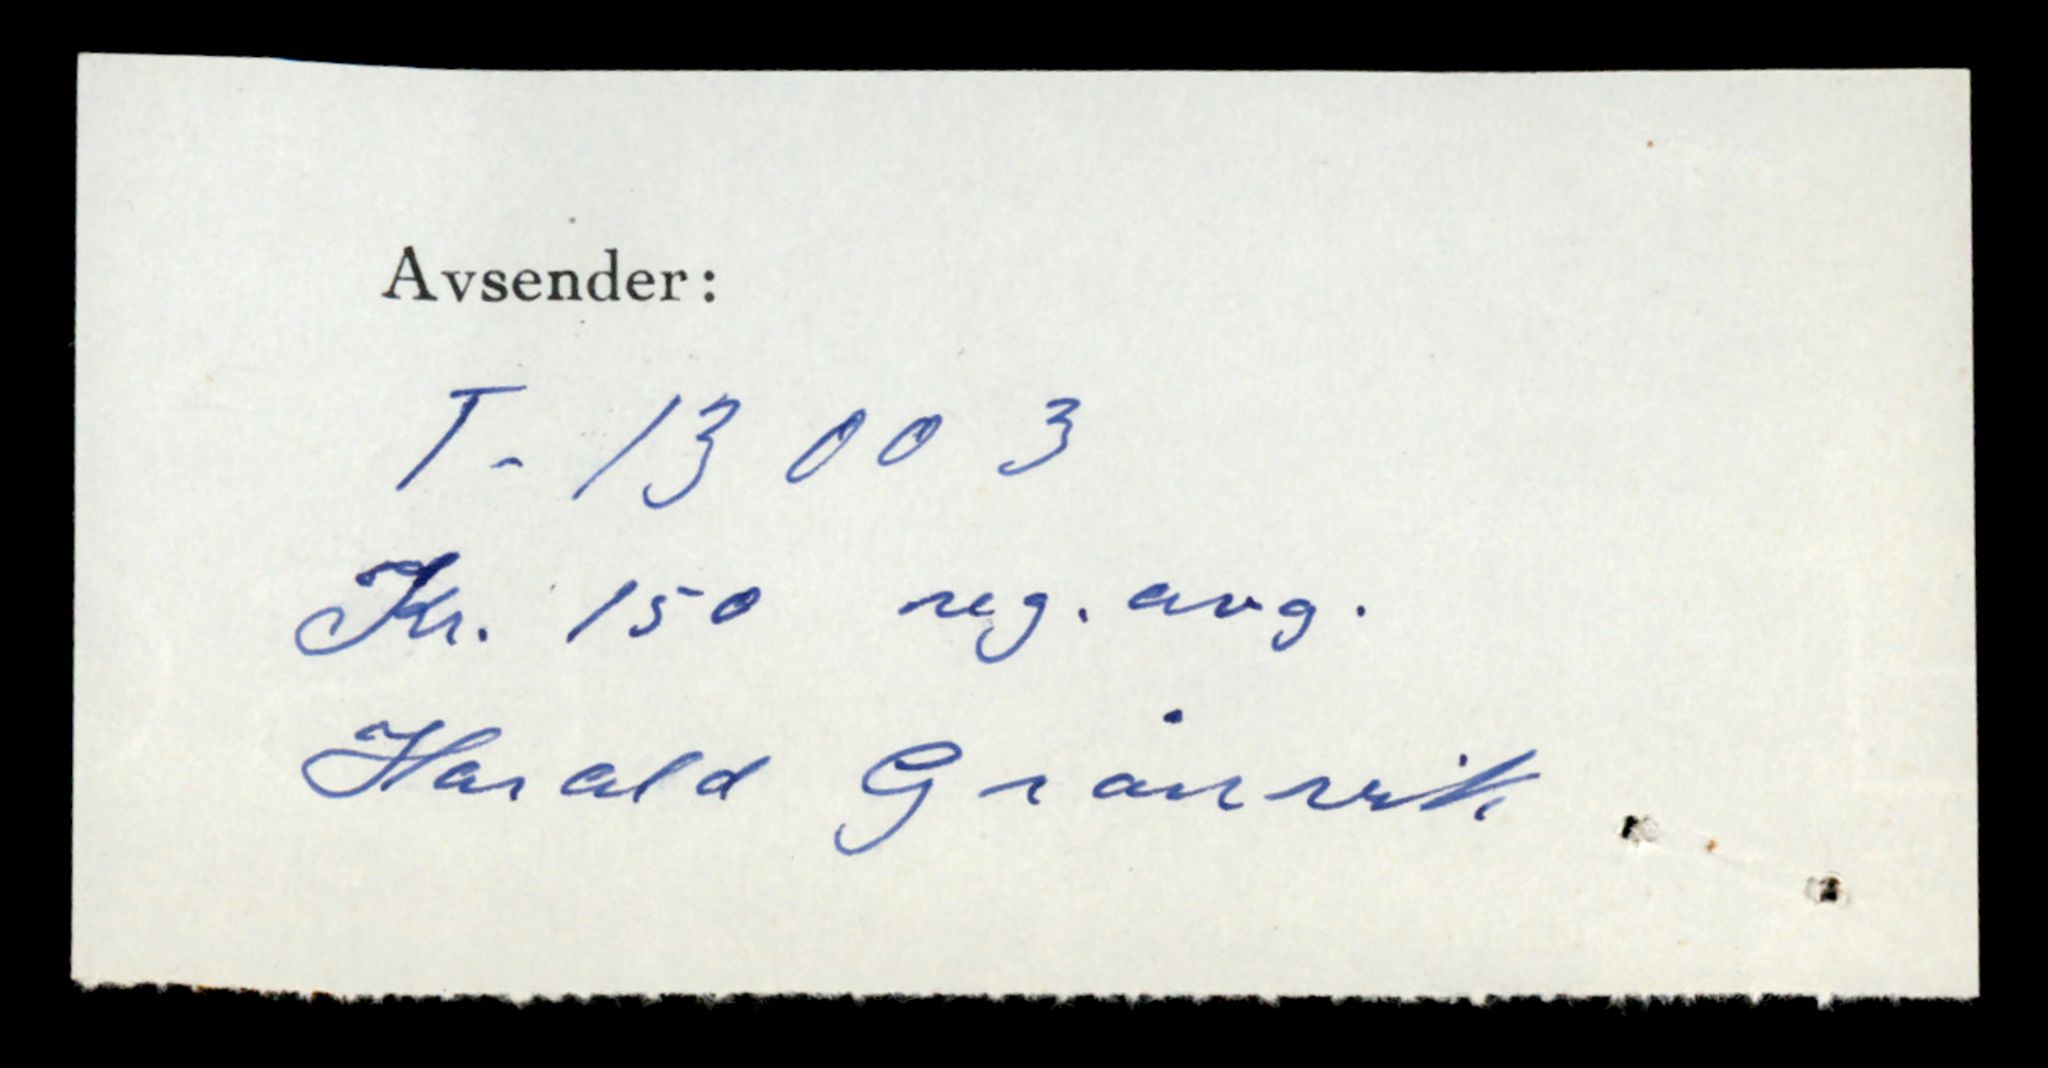 Avsender:
T- 13003
Kr. 150 reg. avg.
Harald Grånvik